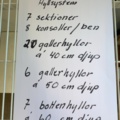 Hyllsystem
7 sektioner
8 konsoller/ben
20 gallerhyllor
á 40 cm djup
6 gallerhyllor
á 50 cm djup
7 bottenhyllor
á 60 cm djup